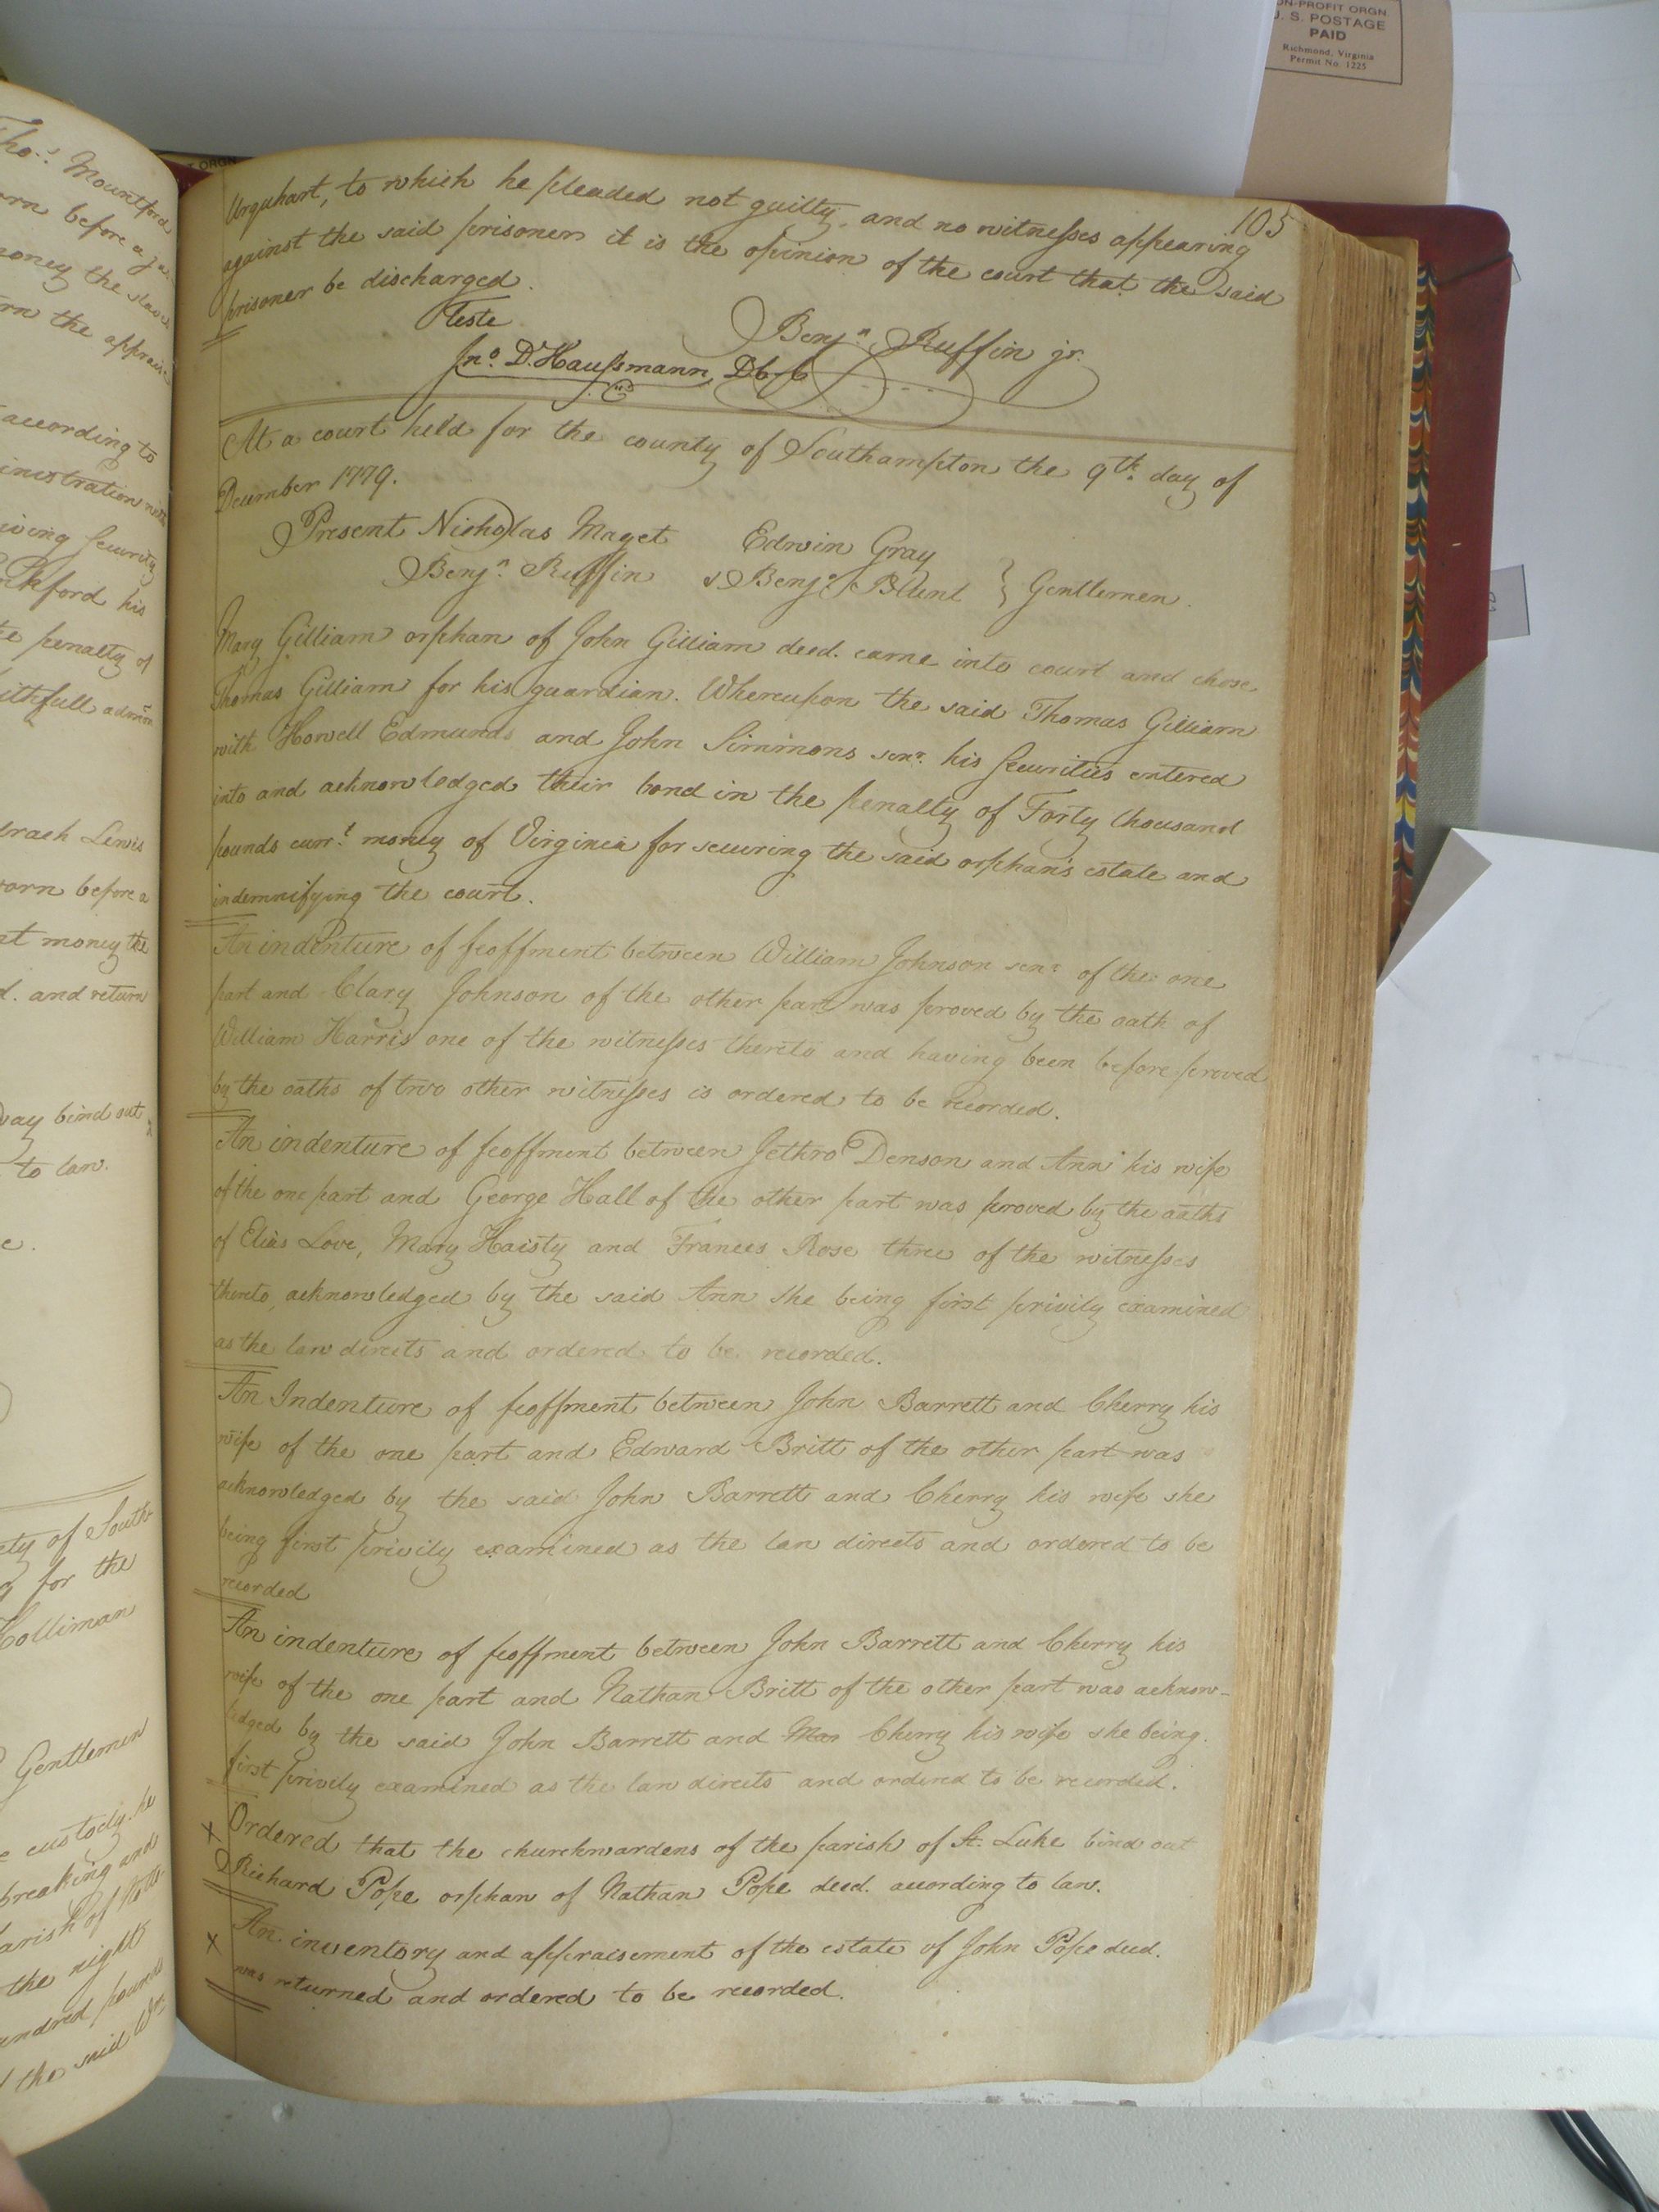 ON-PROFIT ORGN
U. S. POSTAGE
PAID
Richmond, Virginia
Permit No. 1225
T ORGN
Tho.s Mountford
orn before a
money the slaves
rn the apprais
according to
inistration with
iving security
ckford his
te penalty of
ithfull admon
drach Lewis
orn before a
nt money the
d. and return
way bind out
to law.
e.
ty of South
g for the
Holliman
Gentlemen
e custody. he
breaking and
arish of
the night
undred pounds
the said Wm.
105
Urquhart, to which he pleaded not guilty, and no witnesses appearing
against the said prisoner it is the opinion of the court that the said
prisoner be discharged.
Teste
Benj.n Ruffin jr.
Jno. D. Haussmann, D C C
At a court held for the county of Southampton the 9th. day of
December 1779.
Present Nicholas Maget Edwin Gray
Benj.n Ruffin & Benj.n Blunt } Gentlemen.
Mary Gilliam orphan of John Gilliam deed. came into court and chose
Thomas Gilliam for his guardian. Whereupon the said Thomas Gilliam
with Howell Edmunds and John Simmons senr. his securities entered
into and acknowledged their bond in the penalty of Forty thousand
pounds curr.t money of Virginia for securing the said orphan's estate and
indemnifying the court.
An indenture of feoffment between William Johnson senr of the one
part and Clary Johnson of the other part was proved by the oath of
William Harris one of the witnesses thereto and having been before proved
by the oaths of two other witnesses is ordered to be recorded.
An indenture of feoffment between Jethro Denson and Ann his wife
of the one part and George Hall of the other part was proved by the oaths
of Elias Love, Mary Haisty and Frances Rose three of the witnesses
thereto, acknowledged by the said Ann she being first privily examined
as the law directs and ordered to be recorded.
An Indenture of feoffment between John Barrett and Cherry his
wife of the one part and Edward Britt of the other part was
acknowledged by the said John Barrett and Cherry his wife she
being first privily examined as the law directs and ordered to be
recorded
An indenture of feoffment between John Barrett and Cherry his
wife of the one part and Nathan Britt of the other part was acknow-
ledged by the said John Barrett and Mar Cherry his wife she being
first privily examined as the law directs and ordered to be recorded.
x Ordered that the churchwardens of the parish of St. Luke bind out
Richard Pope orphan of Nathan Pope deed. according to law.
x An inventory and appraisement of the estate of John Pope deed.
was returned and ordered to be recorded.